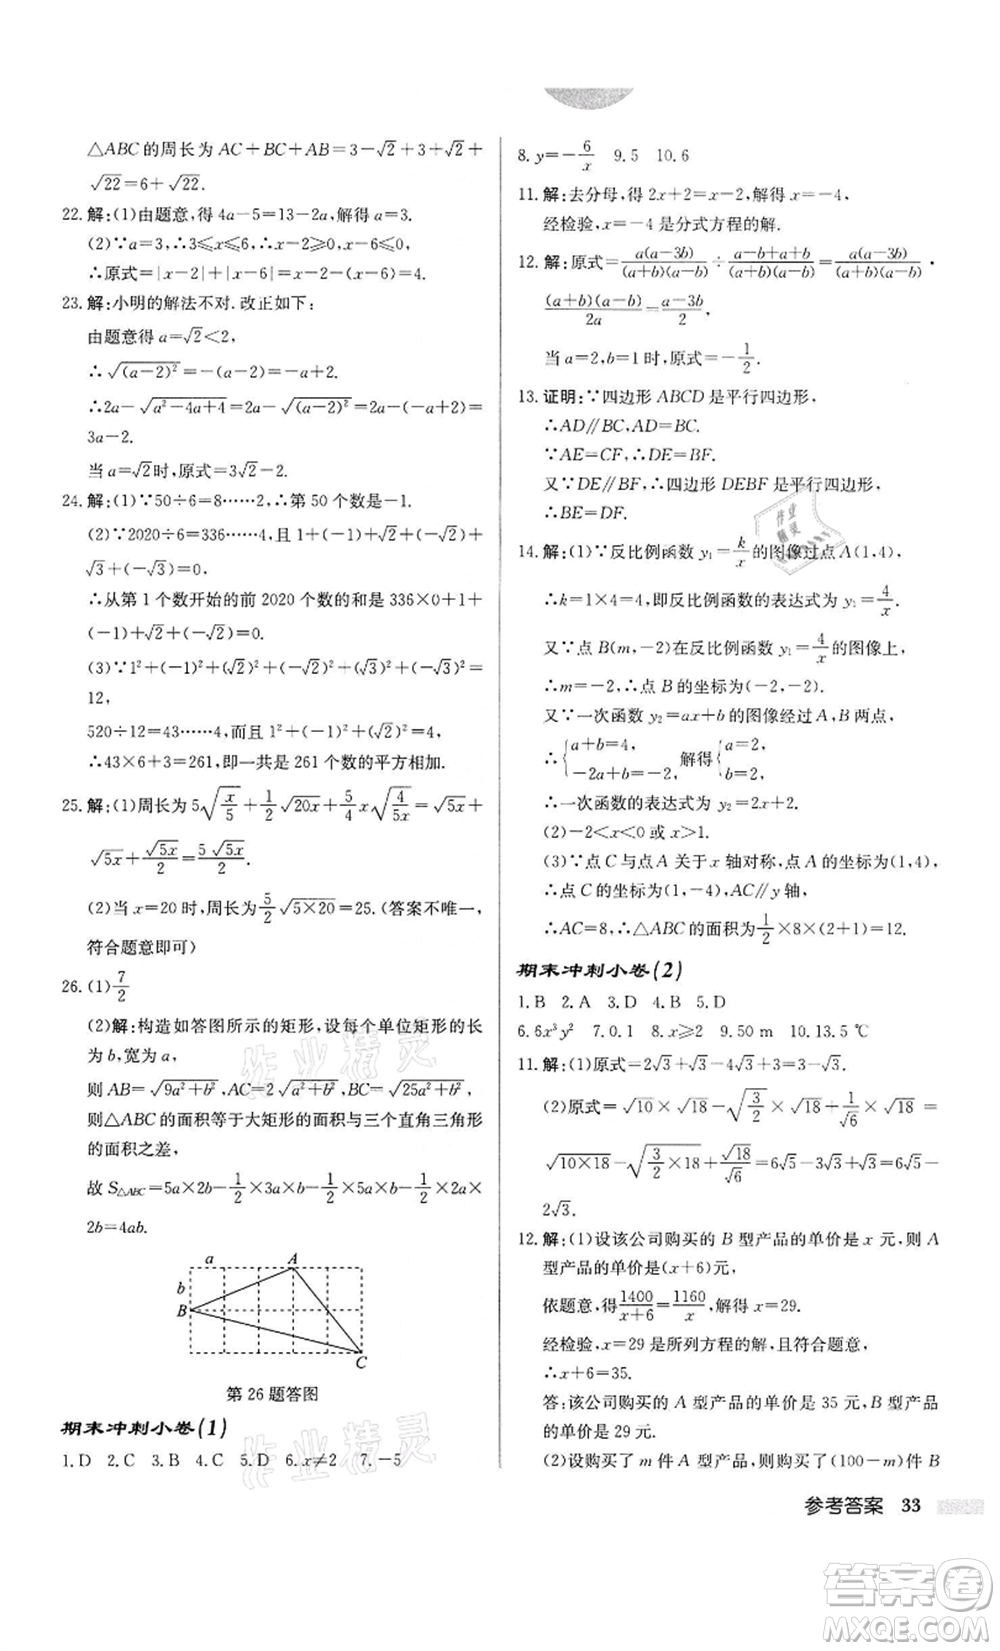 △ABC的周长为AC+BC+AB=3-√2+3+√2+
√22=6+√22.
22.解:(1)由题意,得4a-5=13-2a,解得a=3.
(2)∵a=3,∴3≤x≤6,∴x-2>0,x-6≤0,
∴原式=|x-2|+|x-6|=x-2-x+6=4.
23.解:小明的解法不对.改正如下:
由题意得a=√2<2,
∴√(a-2)²=-(a-2)=-a+2.
∴2a-√a²-4a+4=2a-√(a-2)²=2a+a-2=
3a-2.
当a=√2时,原式=3√2-2.
24.解:(1)∵50÷6=8……2,∴第50个数是-1.
(2)∵2020÷6=336……4,1+(-1)+√2+(-√2)+
√3+(-√3)=0,
∴从第1个数开始的前2020个数的和是336×0+1+
(-1)+√2+(-√2)=0.
(3)∵1²+(-1)²+(√2)²+(-√2)²+(√3)²+(-√3)²=
12,
520÷12=43……4,而且1²+(-1)²+(√2)²=4,
∴43×6+3=261,即一共是261个数的平方相加.
25.解:(1)周长为5√x/5+1/2√20x+5/4x√4/5x=√5x+
√5x+√5x/2=5√5x/2.
(2)当x=20时,周长为5/2√5×20=25.(答案不唯一,
符合题意即可)
26.(1)7/2
(2)解:构造如答图所示的矩形,设每个单位矩形的长
为a,宽为b,
则AB=√9a²+b²,AC=2√a²+b²,BC=√25a²+b²,
则△ABC的面积等于大矩形的面积与三个直角三角形
的面积之差,
故S△ABC=5a×2b-1/2×3a×b-1/2×5a×b-1/2×2a×
2b=4ab.
a A
b
B
C
第26题答图
期末冲刺小卷(1)
1.D 2.C 3.B 4.C 5.D 6.x≠2 7.-5
8.y=-6/x 9.5 10.6
11.解:去分母,得2x+2=x-2,解得x=-4,
经检验,x=-4是分式方程的解.
12.解:原式=a(a-3b)/(a+b)(a-b)÷a-b+a+b/a+b=a(a-3b)/(a+b)(a-b)·
(a+b)(a-b)/2a=a-3b/2,
当a=2,b=1时,原式=-1/2.
13.证明:∵四边形ABCD是平行四边形,
∴AD∥BC,AD=BC.
∵AE=CF,∴DE=BF.
又∵DE∥BF,∴四边形DEBF是平行四边形,
∴BE=DF.
14.解:(1)∵反比例函数y₁=k/x的图像过点A(1,4),
∴k=1×4=4,即反比例函数的表达式为y₁=4/x.
又∵点B(m,-2)在反比例函数y₁=4/x的图像上,
∴m=-2,∴点B的坐标为(-2,-2).
又∵一次函数y₂=ax+b的图像经过A,B两点,
∴{a+b=4, -2a+b=-2, 解得{a=2, b=2,
∴一次函数的表达式为y₂=2x+2.
(2)-2<x<0或x>1.
(3)∵点C与点A关于x轴对称,点A的坐标为(1,4),
∴点C的坐标为(1,-4),AC∥y轴,
∴AC=8,∴△ABC的面积为1/2×8×(2+1)=12.
期末冲刺小卷(2)
1.B 2.A 3.D 4.B 5.D
6.6x³y² 7.0.1 8.x≥2 9.50 m 10.13.5 ℃
11.解:(1)原式=2√3+√3-4√3+√3=0.
(2)原式=√10×√18-√3/2×√18+1/√6×√18=
√10×18-√3/2×18+√18/√6=6√5-3√3+√3=6√5-
2√3.
12.解:(1)设该公司购买的B型产品的单价是x元,则A
型产品的单价是(x+6)元,
依题意,得1400/x+6=1160/x,解得x=29.
经检验,x=29是所列方程的解,且符合题意,
∴x+6=35.
答:该公司购买的A型产品的单价是35元,B型产品
的单价是29元.
(2)设购买了m件A型产品,则购买了(100-m)件B
参考答案 33
作业精灵
作业精灵
作业精灵
答案卷
MXQE.COM